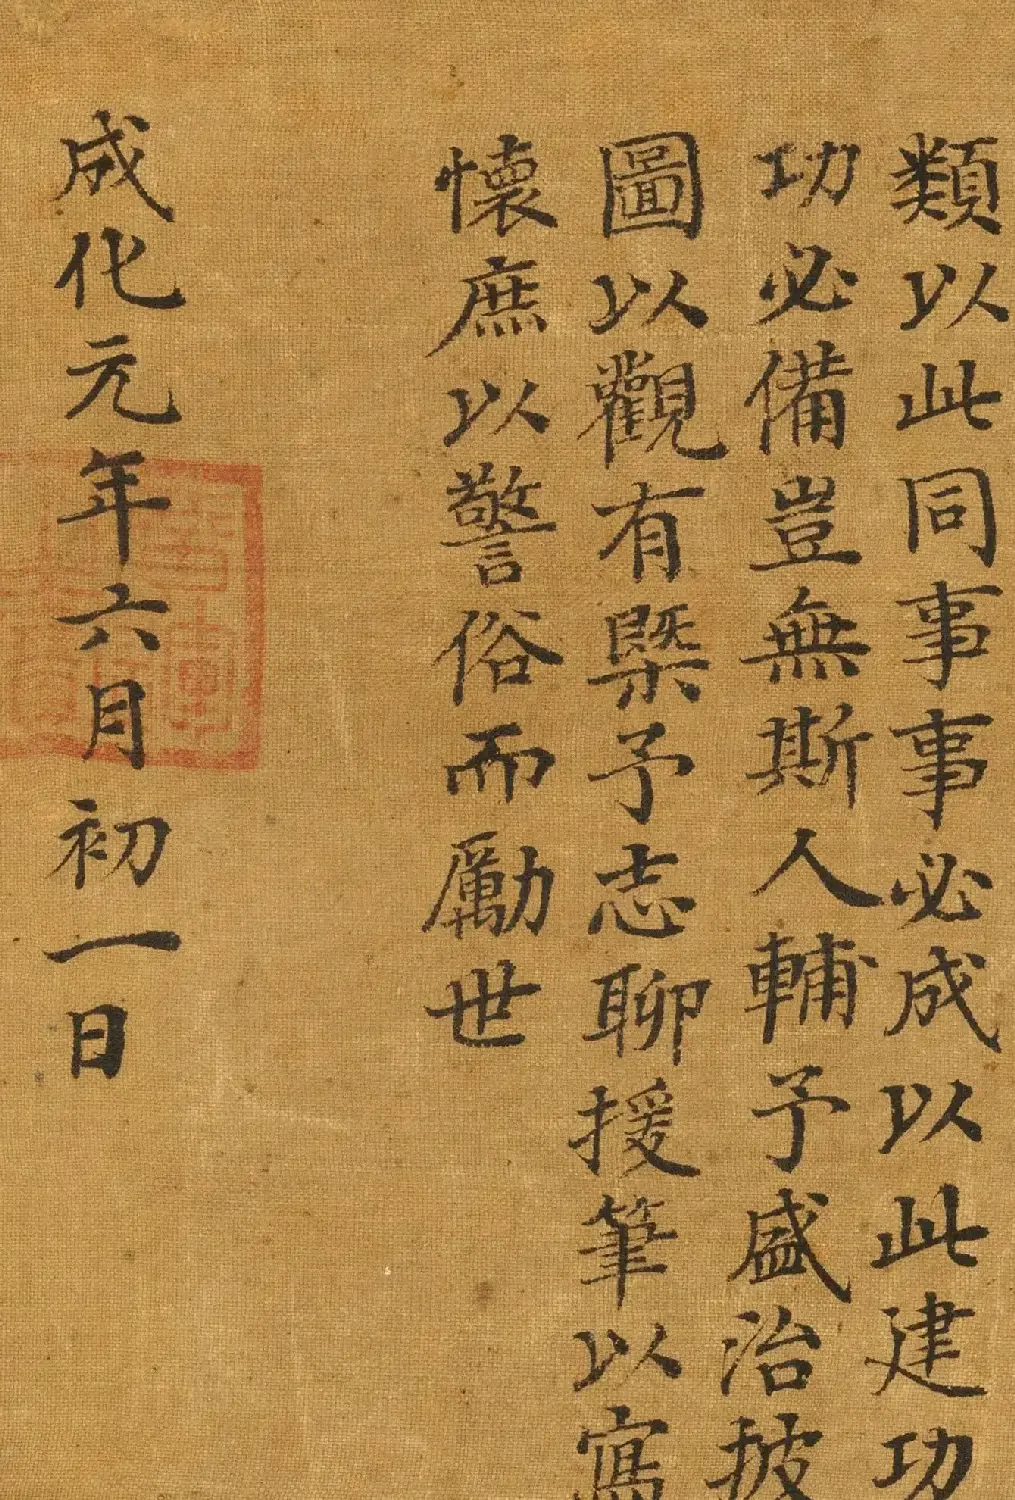 類以此同事事必成以此建功
功必備豈無斯人輔予盛治披
圖以觀有槩予志聊援筆以寫
懷庶以警俗而勵世
成化元年六月初一日